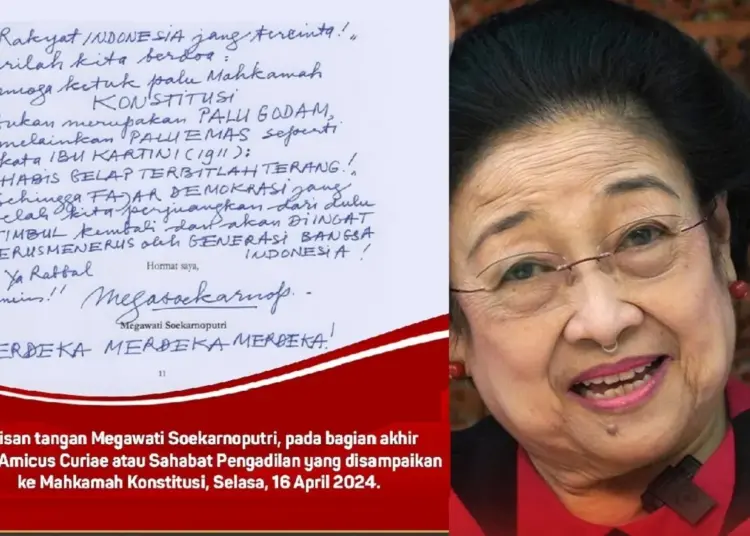 Rakyat INDONESIA jang tercinta!,,
rilah kita berdoa:
moga ketuk palu Mahkamah
KONSTITUSI
ukan merupakan PALU GODAM,
melainkan PALU EMAS seperti
kata IBU KARTINI (1911):
HABIS GELAP TERBITLAH TERANG!,,
sehingga FAJAR DEMOKRASI jang
elah kita perjuangkan dari dulu
TIMBUL kembali dan akan DIINGAT
ERUSMENERUS oleh GENERASI BANGSA
INDONESIA!
Ya Rabbal
Hormat saya,
Megawati Soekarnoputri
ERDEKA MERDEKA MERDEKA!
11
isan tangan Megawati Soekarnoputri, pada bagian akhir
Amicus Curiae atau Sahabat Pengadilan yang disampaikan
ke Mahkamah Konstitusi, Selasa, 16 April 2024.